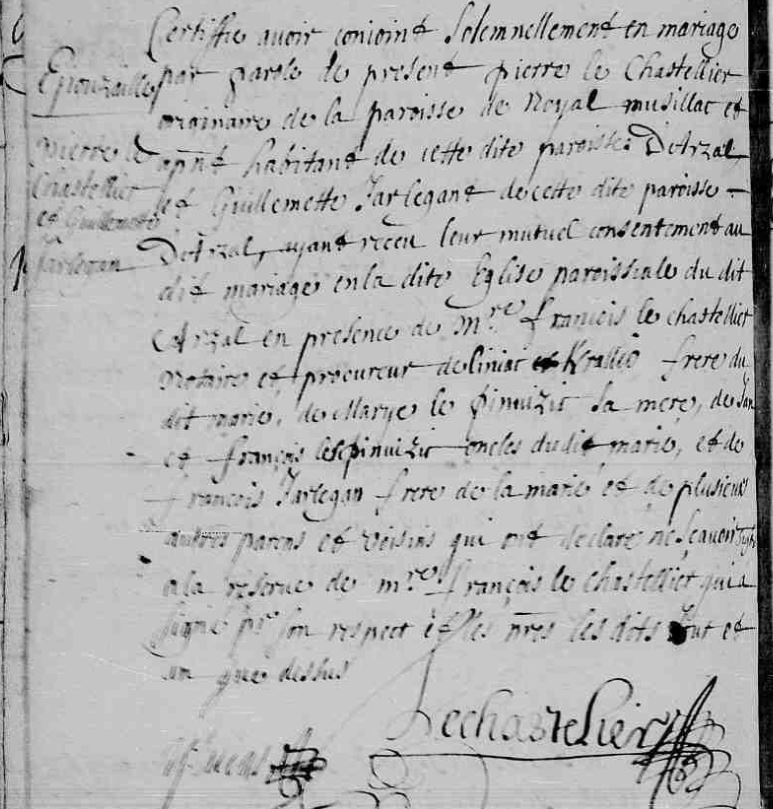 Certiffie avoir conioint Solemnellement en mariage
par parole de present pierre le Chastellier
originaire de la paroisse de Noyal musillac et
apnt habitant de cette dite paroisse D'Arzal
et Guillemette Jarlegant de cette dite paroisse
D'Arzal, ayant receu leur mutuel consentement au
dit mariage en la dite Eglise paroissiale du dit
Arzal en presence de Mre francois le chastellier
Notaire et procureur de et frere du
dit marie, de Marye le pinuizic sa mere, de Jan
et françois les pinuizic oncles du dit marie, et de
francois Jarlegan frere de la marie et de plusieurs
autres parens et voisins qui ont declare ne sçavoir signer
a la reserve de mre françois le chastellier qui a
signé pr son respect et les nres les dits Jour et
an que dessus
Epouzailles
Pierre le
Chastellier
et Guillemette
Jarlegan
Lechastelier